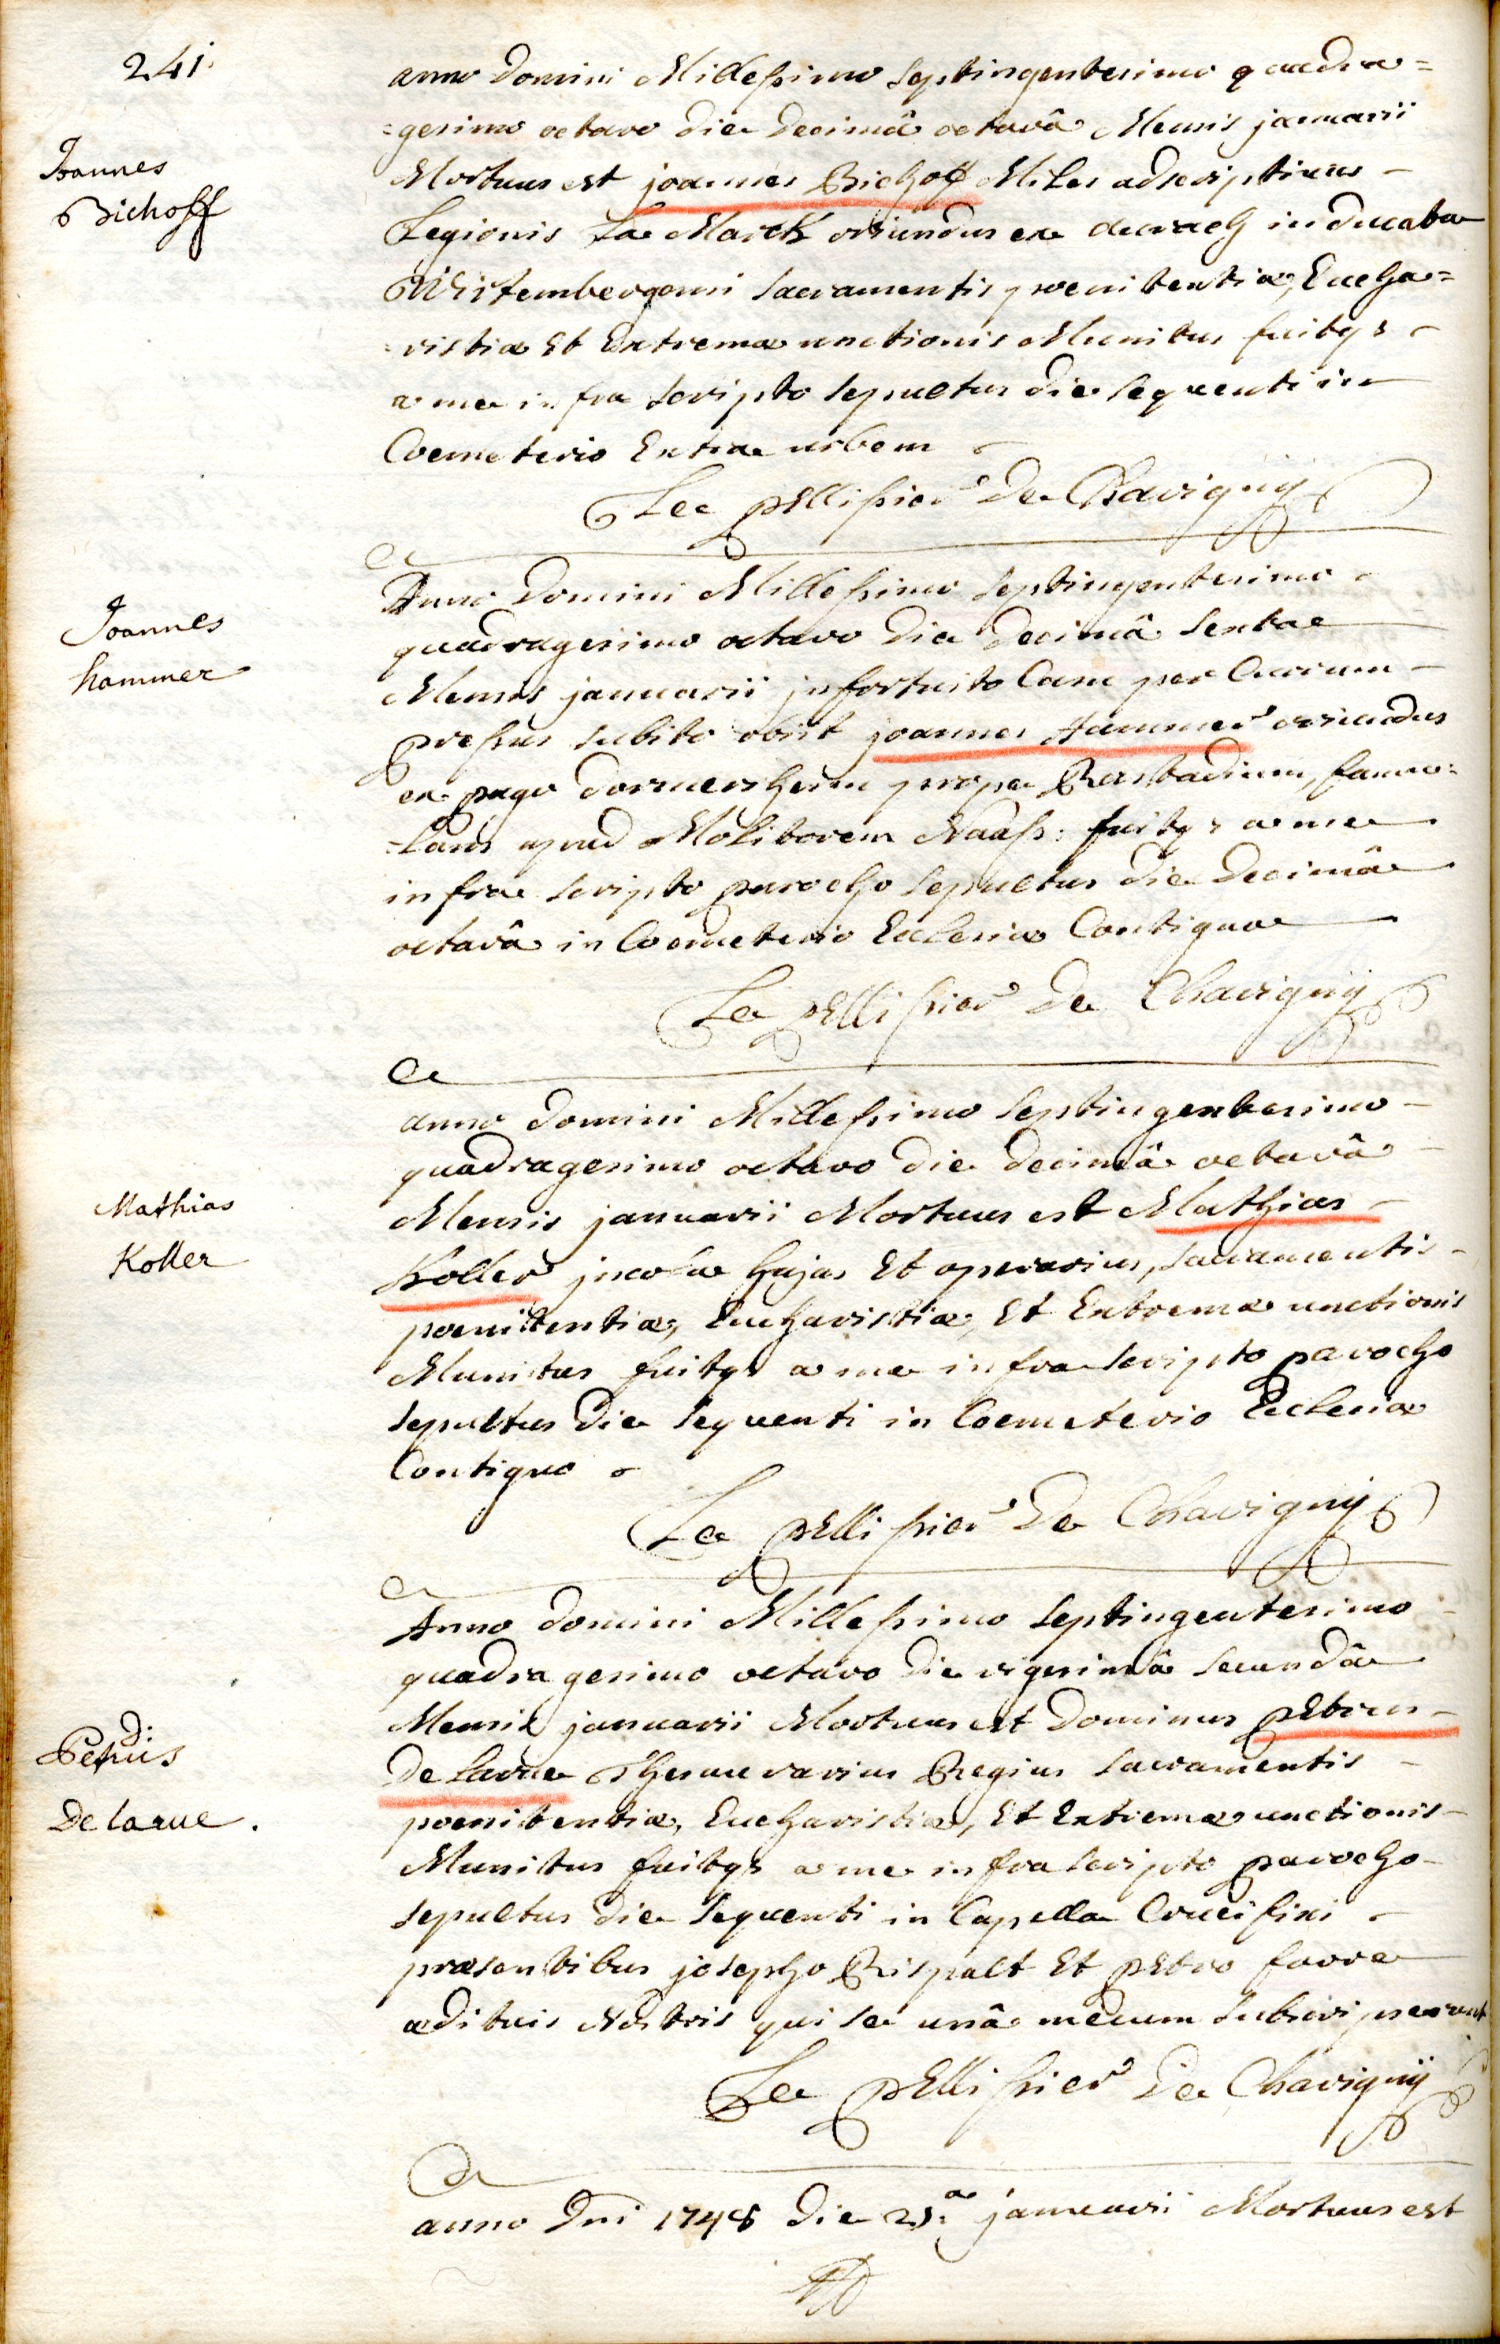 241.
anno Domini Millessimo Septingentesimo quadra=
=gesimo octavo die decimâ octavâ Mensis januarii
Joannes
Bichoff
Mortuus est joannes Bichoff Miles adscriptivus
Legionis La Marck oriundus ex in ducatu
Wirtembergensi sacramentis poenitentiæ, Eucha=
=ristiæ Et Extremæ unctionis Munitus fuitq3
a me infra scripto sepultus die sequenti in
Coemeterio Extra urbem
Le pEllissier De Chavignÿ
Joannes
hammer
Anno Domini Millessimo Septingentesimo
quadragesimo octavo die decimâ sextae
Mensis januarii infortuito Casu per Currum
pressus subito obiit joannes Hammer oriundus
ex pago dormersheim prope Rastadium, famu=
=lans apud Molitorem Naass: fuitq3 a me
infra scripto parocho sepultus die decimâ
octavâ in Coemeterio Ecclesiæ Contiguo
Le pEllissier De Chavignÿ
anno domini Millessimo Septingentesimo
quadragesimo octavo die decimâ octavâ
Mensis januarii Mortuus est Mathias
Mathias
Koller
Koller incola hujas Et operarius, sacramentis
poenitentiæ, Eucharistiæ, Et Extremæ unctionis
Munitus fuitq3 a me infra scripto parocho
sepultus die sequenti in Coemeterio Ecclesiæ
Contiguo
Le pEllissier De Chavignÿ
Anno domini Millessimo Septingentesimo
quadragesimo octavo die vigesimâ secundâ
Mensis januarii Mortuus est Dominus pEtrus
D.
Petrus
De larue.
De Larue Regius sacramentis
poenitentiæ, Eucharistiæ, Et Extremæ unctionis
Munitus fuitq3 a me infra scripto parocho
sepultus die sequenti in Capella Crucifixi
præsentibus josepho Rispalt Et pEtro favre
ædituis Nostris qui se unâ mecum subscripserunt
Le pEllissier De Chavignÿ
anno Dni 1748 die 23.a januarii Mortuus est